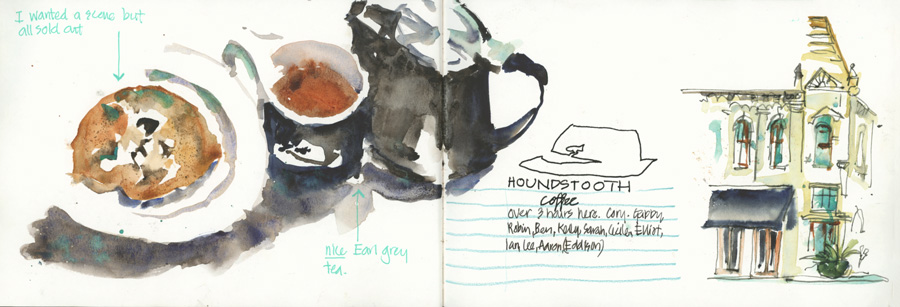 I wanted a scone but
all sold out
nice Earl grey
tea.
HOUNDSTOOTH
coffee
over 3 hours here. Cory. Gabby,
Robin, Ben, Kelly, Sarah, Elliot,
Ian Lee, Aaron (Eddison)